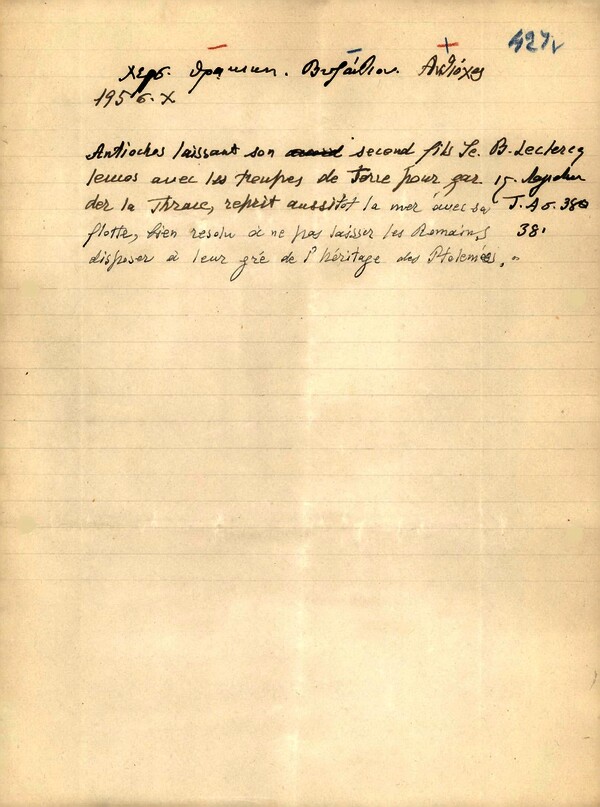 427
χερσ. Θρακικη. Βυζάντιον. Αντιόχος
195 π. Χ
Antiochos laissant son second fils Se. B. Leclercq
lemos avec les troupes de torre pour gar
der la Thrace, reprit aussitot la mer avec sa T. A σ. 380
flotte, bien resolu à ne pas laisser les Romains 381
disposer à leur gré de l'héritage des Ptolemées.